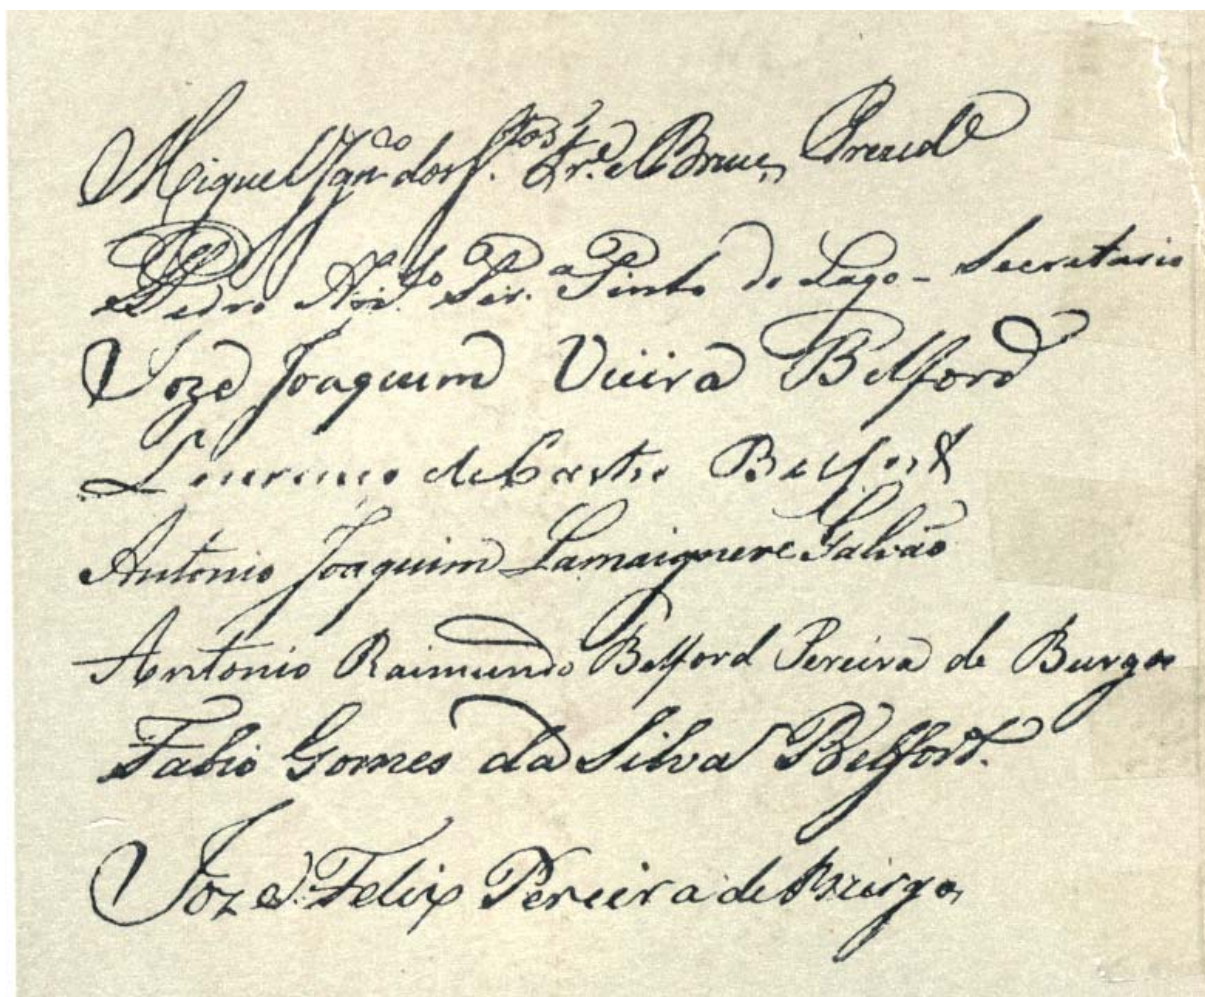 Miguel Ign.co dos S.tos Fr.e e Bruce, Presid.e
Pedro Ant.o Per.a Pinto do Lago - Secretario
Joze Joaquim Vieira Belford
Lourenço de Castro Belfort
Antonio Joaquim Lamaignere Galvão
Antonio Raimundo Belford Pereira de Burgos
Fabio Gomes da Silva Belfort.
Joze Felix Pereira de Burgos